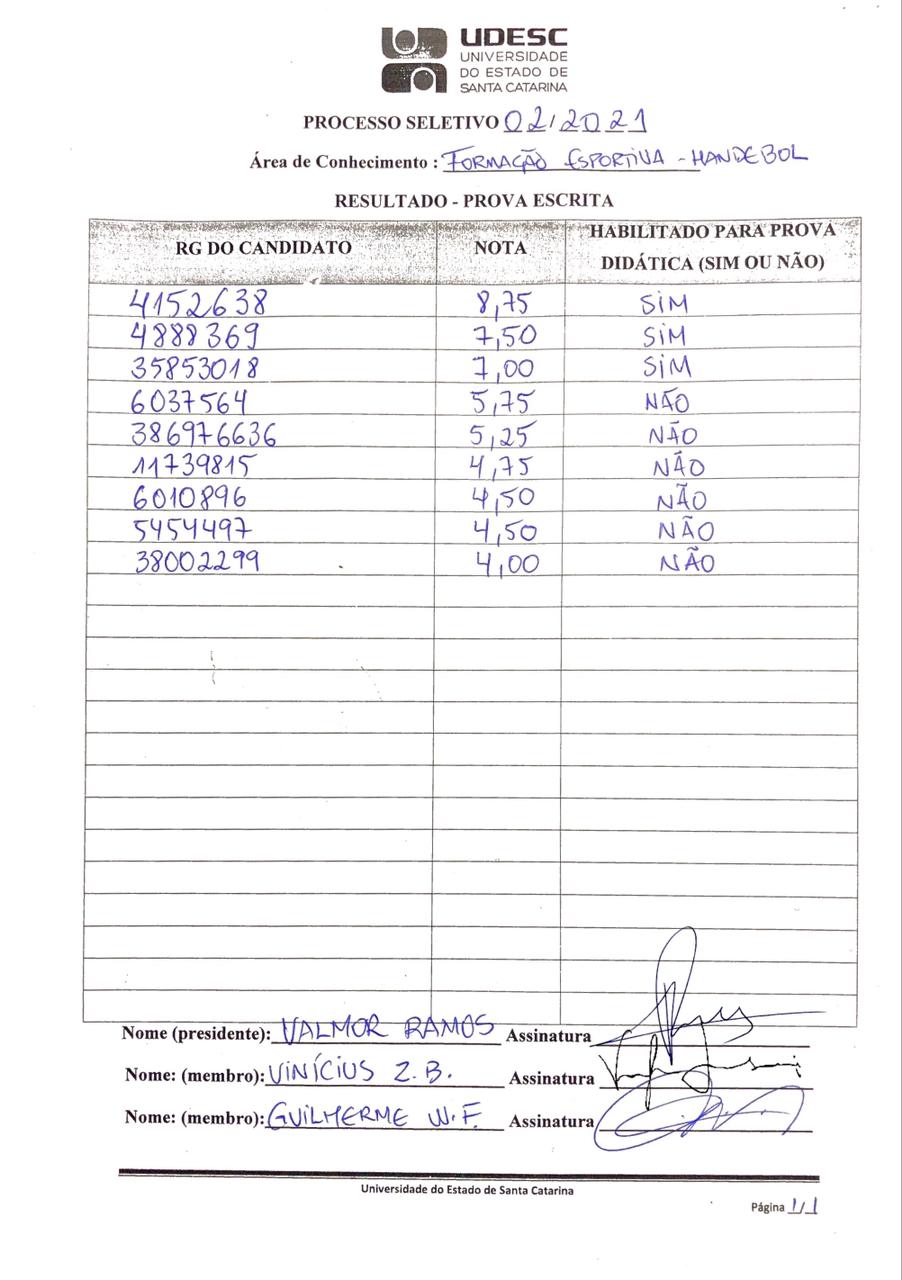 UDESC
UNIVERSIDADE
DO ESTADO DE
SANTA CATARINA
PROCESSO SELETIVO 02/2021
Área de Conhecimento : FORMAÇÃO ESPORTIVA - HANDEBOL
RESULTADO - PROVA ESCRITA
RG DO CANDIDATO NOTA HABILITADO PARA PROVA DIDÁTICA (SIM OU NÃO)
4152638 8,75 SIM
4888369 7,50 SIM
35853018 7,00 SIM
6037564 5,75 NÃO
386976636 5,25 NÃO
11739815 4,75 NÃO
6010896 4,50 NÃO
5454497 4,50 NÃO
38002299 4,00 NÃO
Nome (presidente): VALMOR RAMOS Assinatura
Nome: (membro): VINÍCIUS Z.B. Assinatura
Nome: (membro): GUILHERME W.F. Assinatura
Universidade do Estado de Santa Catarina
Página 1/1